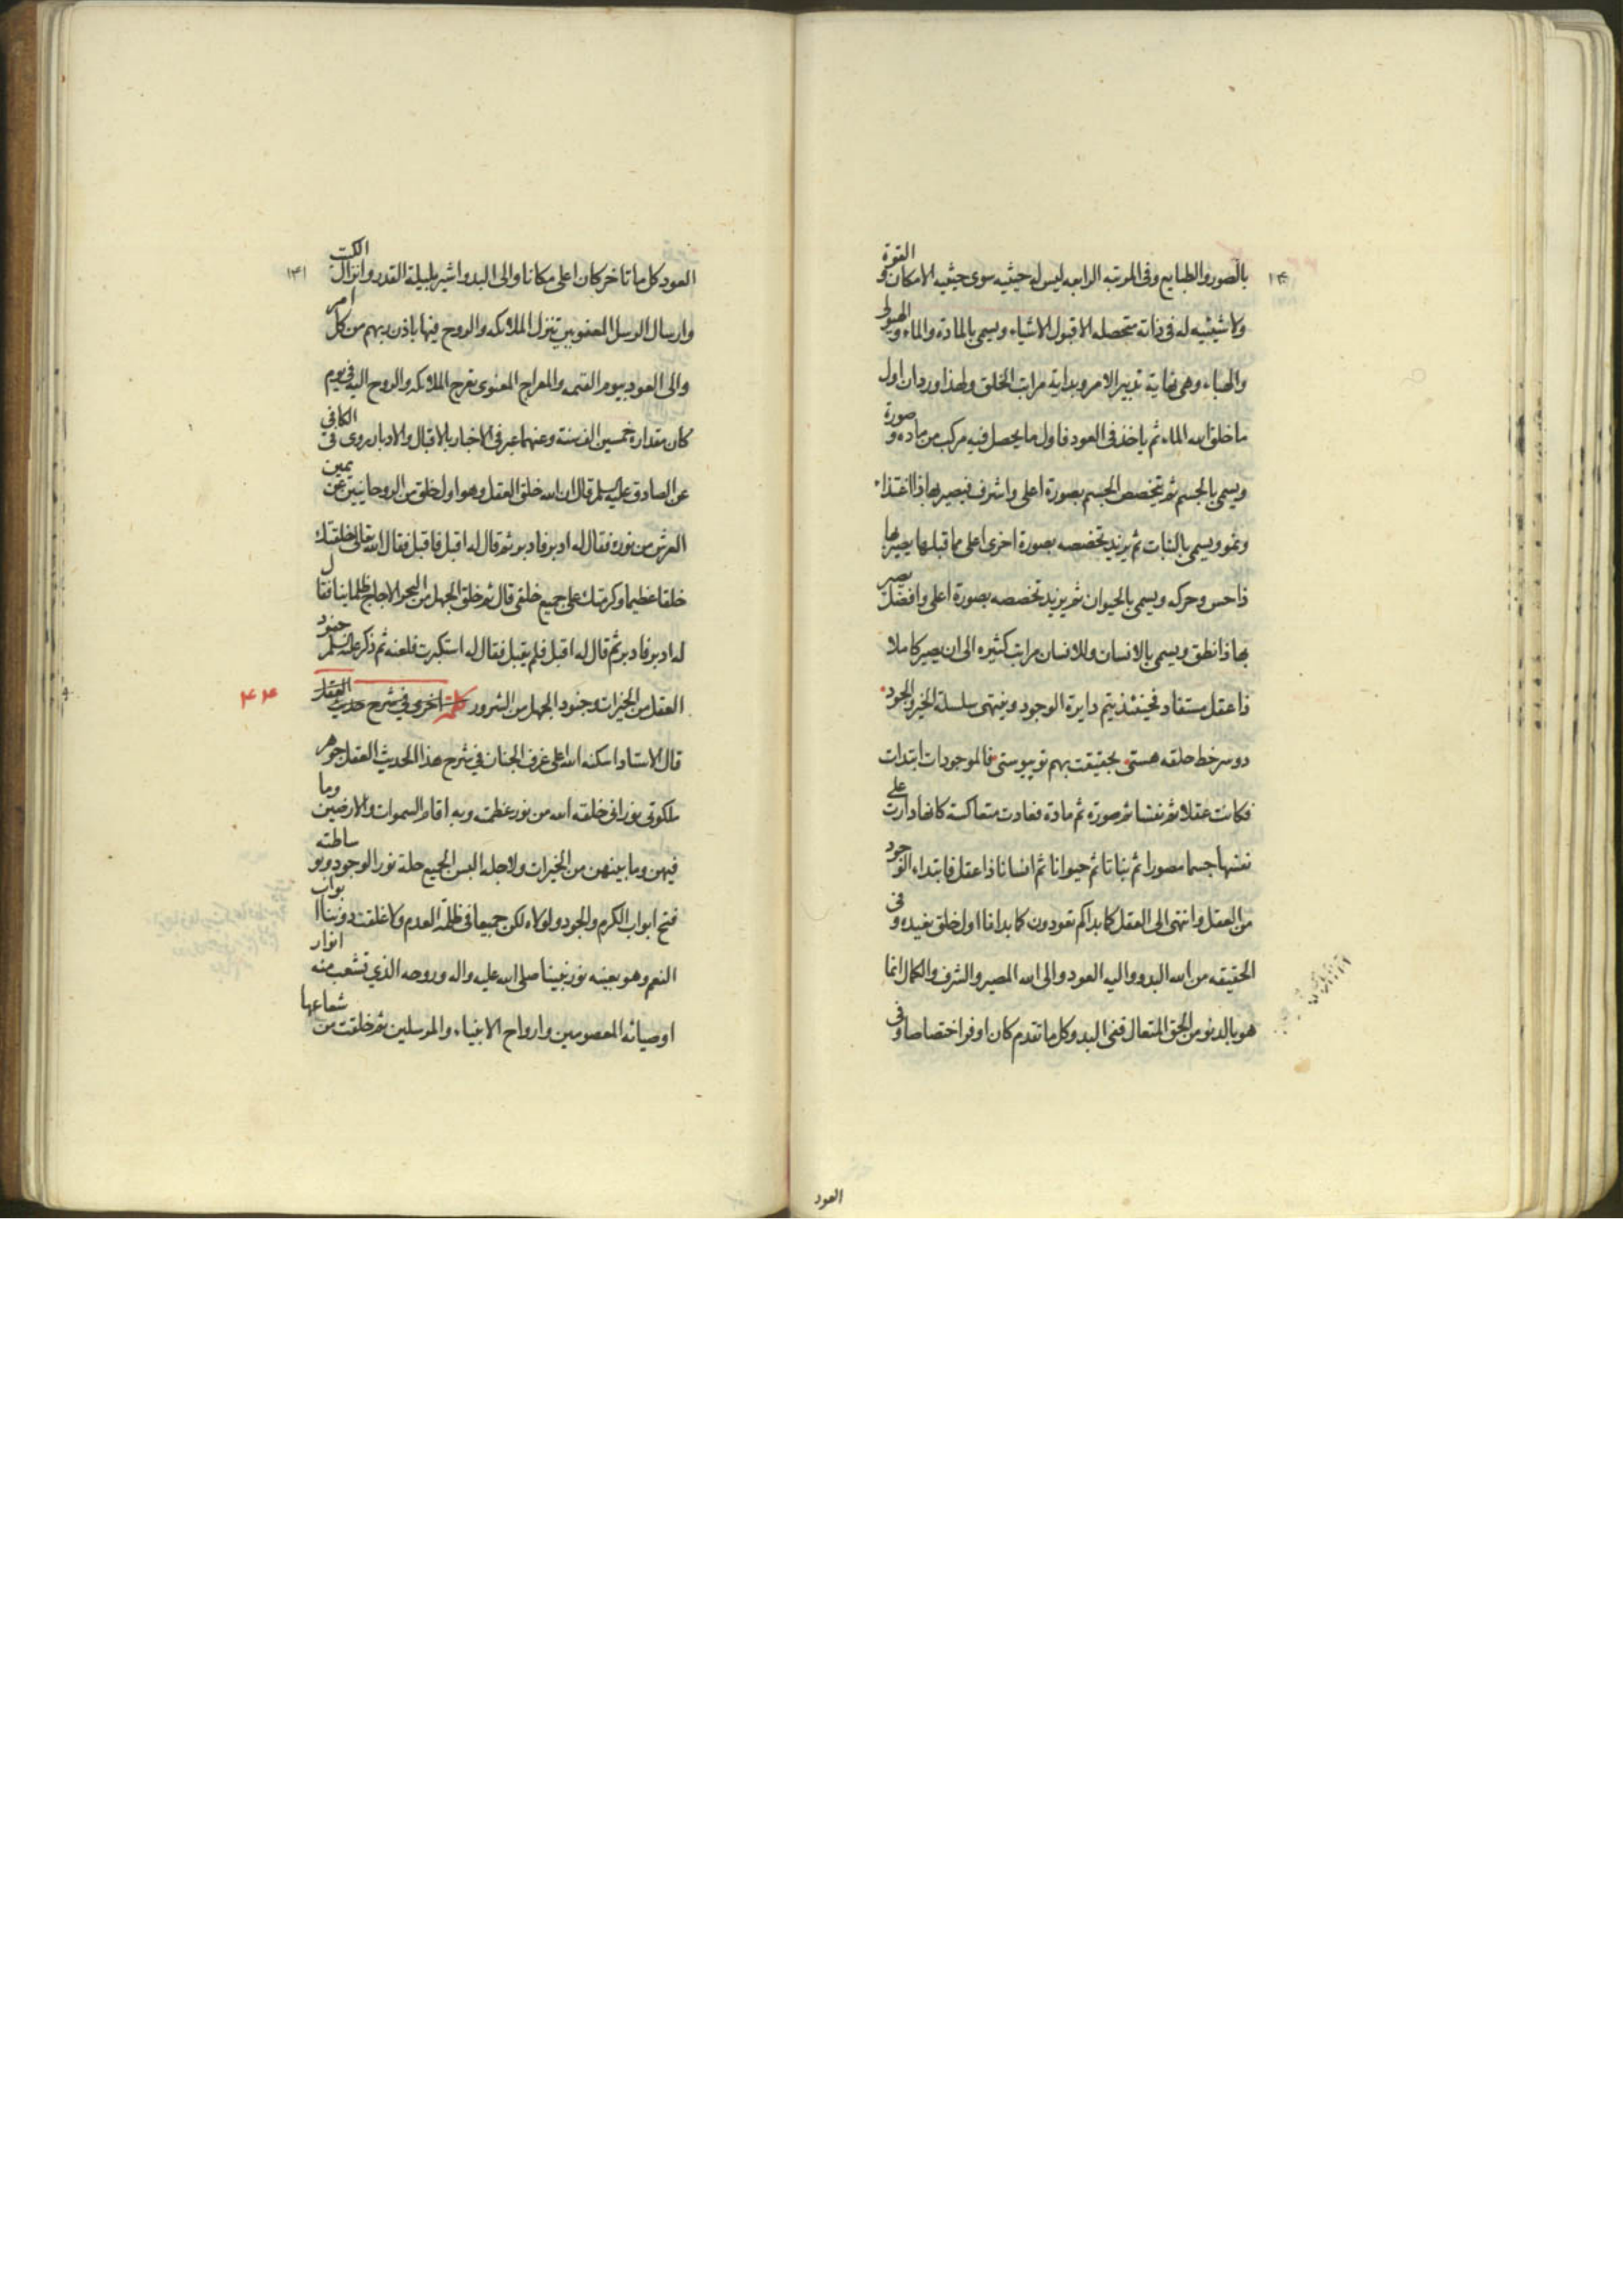 ١٤٠
بالصور والطبايع وفى المرتبه الرابعه ليس له حيثيه سوى حيثيه الامكان والقوة
ولا شيئيه له فى ذاته متحصله الا قبول الاشياء ويسمى بالمادة والماء والهيولى
والهباء وهى نهاية تدبير الامر وبداية مراتب الخلق ولهذا ورد ان اول
ما خلق الله الماء ثم ياخذ فى العود فاول ما يحصل فيه مركب من ماده وصورة
ويسمى بالجسم ثم يتخصص الجسم بصورة اعلى واشرف فيصير بها ذا اغتذاء
ونمو ويسمى بالنبات ثم يزيد تخصصه بصورة اخرى اعلى مما قبلها يصير بها
ذا حس وحركه ويسمى بالحيوان ثم يزيد تخصصه بصورة اعلى وافضل يصير
بها ذا نطق ويسمى بالانسان وللانسان مراتب كثيره الى ان يصير كاملا
ذا عقل مستفاد فحينئذ يتم دايرة الوجود وينتهى سلسلة الخير والجود
دو سر خط حلقه هستى بحقيقت بهم تو پيوستى فالموجودات ابتدات
فكانت عقلا ثم نفسا ثم صورة ثم مادة فعادت متعاكسة كانها دارت على
نفسها جسما مصورا ثم نباتا ثم حيوانا ثم انسانا ذا عقل فابتداء الوجود
من العقل وانتهى الى العقل كما بداكم تعودون كما بدانا اول خلق نعيده وفى
الحقيقه من الله البدو واليه العود والى الله المصير والشرف والكمال انما
هو بالدنو من الحق المتعال ففى البدو كل ما تقدم كان اوفر اختصاصا وفى
العود
١٤١
العود كل ما تاخر كان اعلى مكانا والى البدو اشير بليلة القدر وانزال الكتب
وارسال الرسل المعنويين تنزل الملائكه والروح فيها باذن ربهم من كل امر
والى العود بيوم القيمه والمعراج المعنوى تعرج الملائكه والروح اليه فى يوم
كان مقداره خمسين الف سنة وعنهما عبر فى الاخبار بالاقبال والادبار روى فى الكافى
عن الصادق عليه السلم قال ان الله خلق العقل وهو اول خلق من الروحانيين عن يمين
العرش من نوره فقال له ادبر فادبر ثم قال له اقبل فاقبل فقال الله تعالى خلقتك
خلقا عظيما وكرمتك على جميع خلقى قال ثم خلق الجهل من البحر الاجاج ظلمانيا فقال
له ادبر فادبر ثم قال له اقبل فلم يقبل فقال له استكبرت فلعنه ثم ذكر عليه السلم جنود
العقل من الخيرات وجنود الجهل من الشرور كلمة اخرى فى شرح حديث العقل
٤٤
قال الاستاد اسكنه الله اعلى غرف الجنان فى شرح هذا الحديث العقل جوهر
ملكوتى نورانى خلقه الله من نور عظمته وبه اقام السموات والارضين وما
فيهن وما بينهن من الخيرات ولاجله البس الجميع حلة نور الوجود وبوساطته
فتح ابواب الكرم والجود ولولاه لكن جميعا فى ظلمة العدم ولاغلقت دوننا ابواب
النعم وهو بعينه نور نبينا صلى الله عليه واله وروحه الذي تشعب منه انوار
اوصيائه المعصومين وارواح الانبياء والمرسلين ثم خلقت من شعاعها